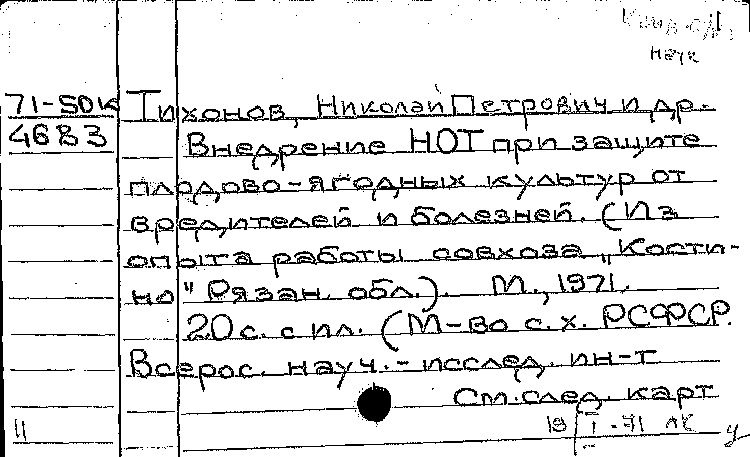 наук
71-5DK Тихонов, Николай Петрович и др.
4683 Внедрение НОТ при защите
плодово-ягодных культур от
вредителей и болезней. (Из
опыта работы совхоза „Кости-
но" Рязан. обл.). М., 1971.
20 с. с ил. (М-во с. х. РСФСР.
Всерос. науч.-исслед. ин-т
См. след. карт
11 19 I-71